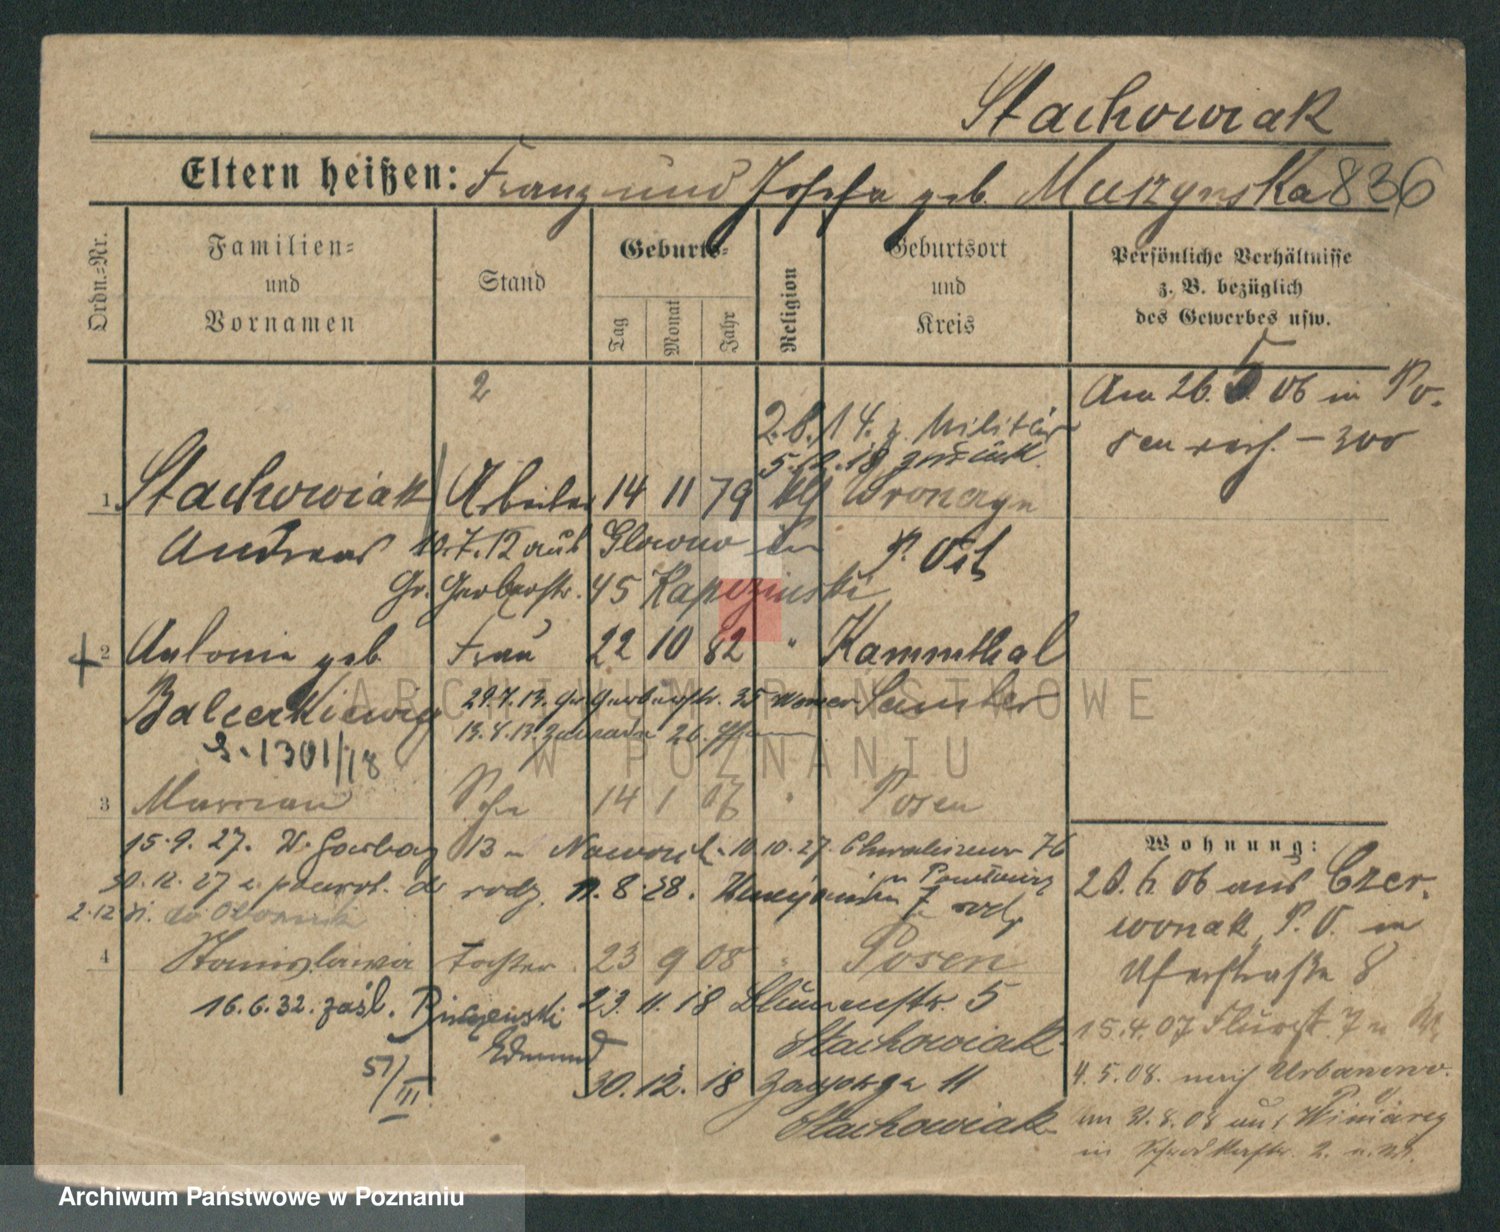 Stachowiak
Eltern heißen: Franz und Josefa geb. Muszynska 836
Ordn.-Nr.
Familien-
und
Vornamen
Stand
Geburts-
Tag
Monat
Jahr
Religion
Geburtsort
und
Kreis
Persönliche Verhältnisse
z. B. bezüglich
des Gewerbes usw.
2
Am 26. 5. 06 in Po-
sen - 300
2. 8. 14. z. Militär
5. 12. 18 zurück.
1 Stachowiak Arbeiter 14 11 79 Wronczyn
Andreas 10.7.12 aus Glowno in P. Ost
Gr. Gerberstr. 45 Kapczinski
2 Antonie geb. Frau 22 10 82 " Kammthal
Balcerkiewicz 29.7.13. Gr. Gerberstr. 35 Samter
13.8.13. 26.
S. 1301/18
3 Marian Sohn 14 1 07 " Posen
15.9.27. W. Garbary 13 10.10.27. Chwaliszewo 76
30.12.27 z powrot. do rodz. 11.8.28. 7
2.12
4 Stanislawa Tochter 23 9 08 " Posen
16.6.32. zaśl. 23.11.18 Blumenstr. 5
Edmund Stachowiak
51/III 30.12.18 Zagorze 11
Stachowiak
Wohnung:
20.6.06 aus Czer-
wonak, P. O. in
Uferstraße 8
15.4.07 Flurstr. 7
4.5.08. nach Urbanowo.
am 31.8.08 aus Winiary
in 2.
ARCHIWUM PAŃSTWOWE
W POZNANIU
Archiwum Państwowe w Poznaniu